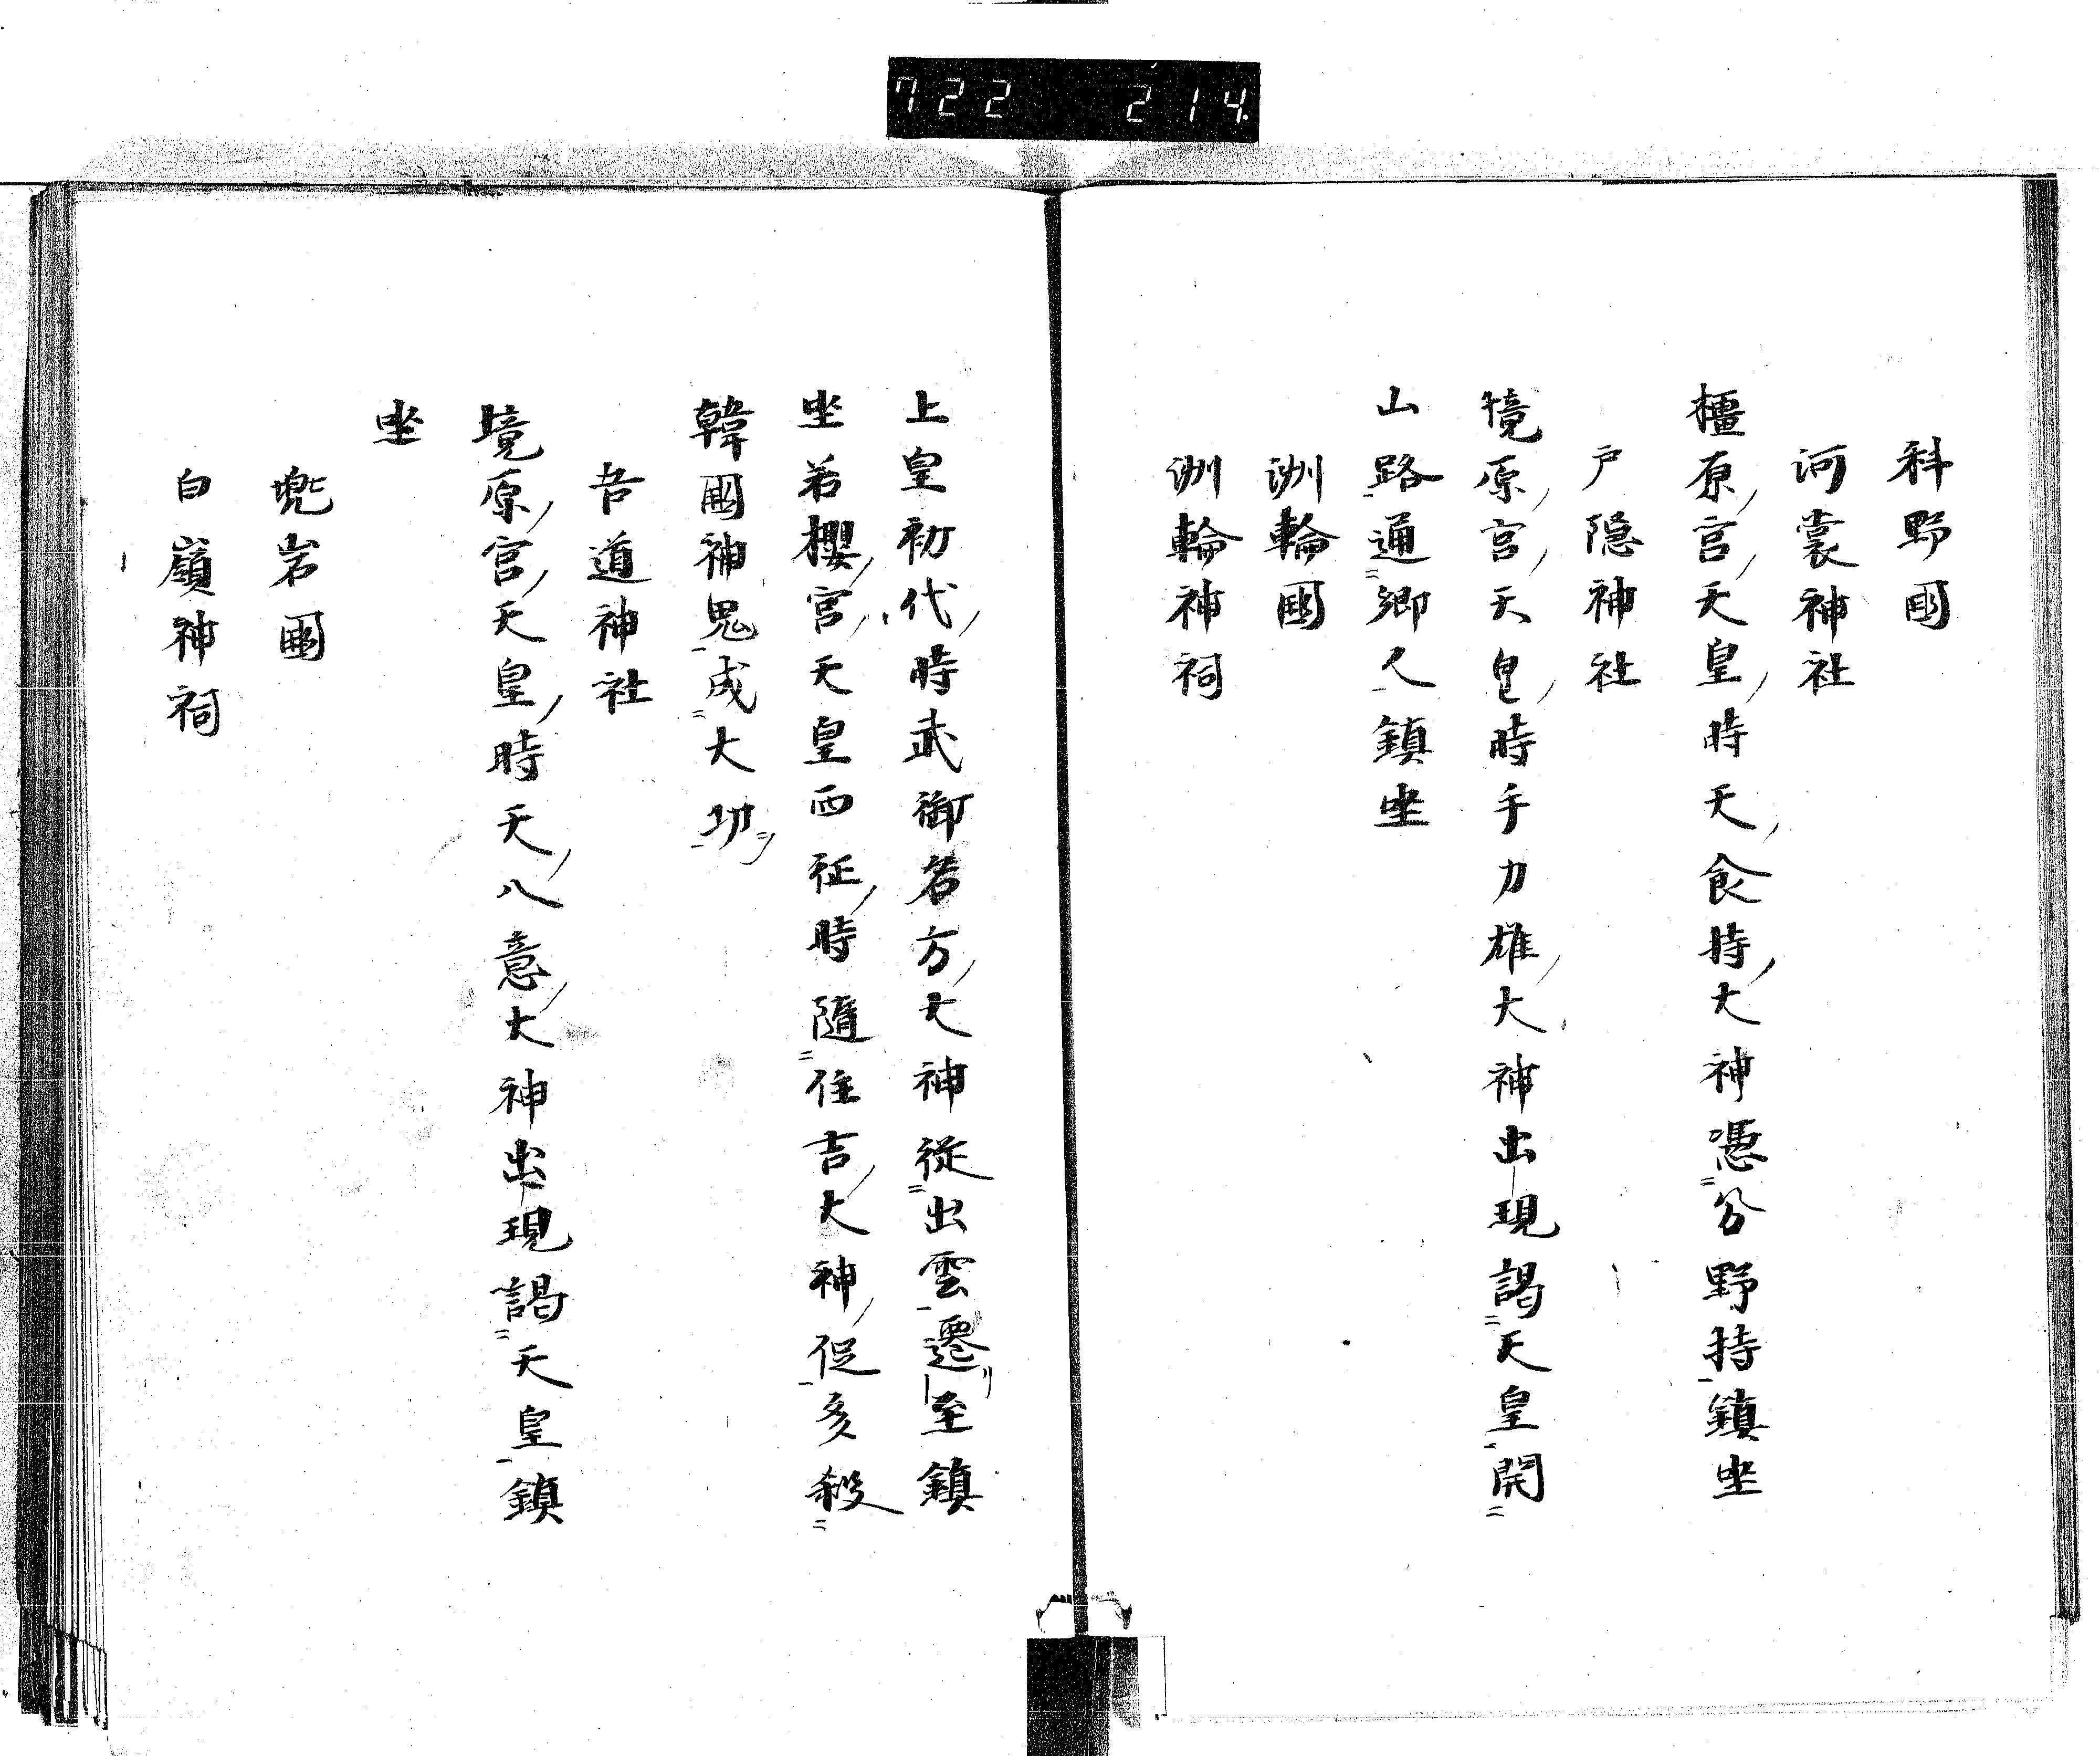 722 214
科野國
河裳神社
橿原ノ宮ノ天皇ノ時天ノ食持ノ大神憑分野持鎮坐
戸隠神社
境原ノ宮ノ天皇ノ時手力雄ノ大神出現謁天皇開
山路通郷人鎮坐
洲輪國
洲輪神祠
上皇初代ノ時武御若方ノ大神従出雲遷リ至鎮
坐若櫻ノ宮ノ天皇西征ノ時隨住吉ノ大神ノ促多殺
韓國神鬼成大功
吾道神社
境原ノ宮ノ天皇ノ時天ノ八意ノ大神出現謁天皇鎮
坐
兜岩國
白嶺神祠